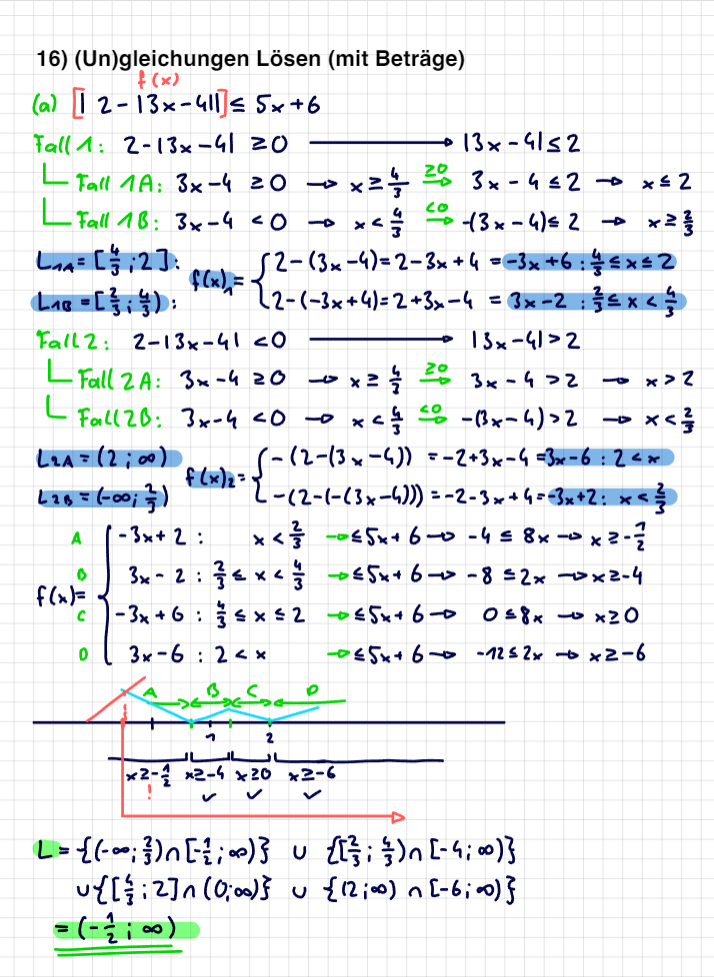 16) (Un)gleichungen Lösen (mit Beträge)
f(x)
(a) [| 2 - |3x - 4||] ≤ 5x + 6
Fall 1: 2 - |3x - 4| ≥ 0 → |3x - 4| ≤ 2
Fall 1A: 3x - 4 ≥ 0 → x ≥ 4/3 ≥0⇒ 3x - 4 ≤ 2 → x ≤ 2
Fall 1B: 3x - 4 < 0 → x < 4/3 <0⇒ -(3x - 4) ≤ 2 → x ≥ 2/3
L1A = [4/3 ; 2] : f(x)₁ = { 2 - (3x - 4) = 2 - 3x + 4 = -3x + 6 : 4/3 ≤ x ≤ 2
L1B = [2/3 ; 4/3) : 2 - (-3x + 4) = 2 + 3x - 4 = 3x - 2 : 2/3 ≤ x < 4/3
Fall 2: 2 - |3x - 4| < 0 → |3x - 4| > 2
Fall 2A: 3x - 4 ≥ 0 → x ≥ 4/3 ≥0⇒ 3x - 4 > 2 → x > 2
Fall 2B: 3x - 4 < 0 → x < 4/3 <0⇒ -(3x - 4) > 2 → x < 2/3
L2A = (2 ; ∞) f(x)₂ = { -(2 - (3x - 4)) = -2 + 3x - 4 = 3x - 6 : 2 < x
L2B = (-∞ ; 2/3) -(2 - (-(3x - 4))) = -2 - 3x + 4 = -3x + 2 : x < 2/3
A -3x + 2 : x < 2/3 → ≤ 5x + 6 → -4 ≤ 8x → x ≥ -1/2
B 3x - 2 : 2/3 ≤ x < 4/3 → ≤ 5x + 6 → -8 ≤ 2x → x ≥ -4
f(x) = {
C -3x + 6 : 4/3 ≤ x ≤ 2 → ≤ 5x + 6 → 0 ≤ 8x → x ≥ 0
D 3x - 6 : 2 < x → ≤ 5x + 6 → -12 ≤ 2x → x ≥ -6
A B C D
1 2
x ≥ -1/2 x ≥ -4 x ≥ 0 x ≥ -6
! ✓ ✓ ✓
L = {(-∞ ; 2/3) ∩ [-1/2 ; ∞)} ∪ {[2/3 ; 4/3) ∩ [-4 ; ∞)}
∪ {[4/3 ; 2] ∩ (0 ; ∞)} ∪ {(2 ; ∞) ∩ [-6 ; ∞)}
= (-1/2 ; ∞)